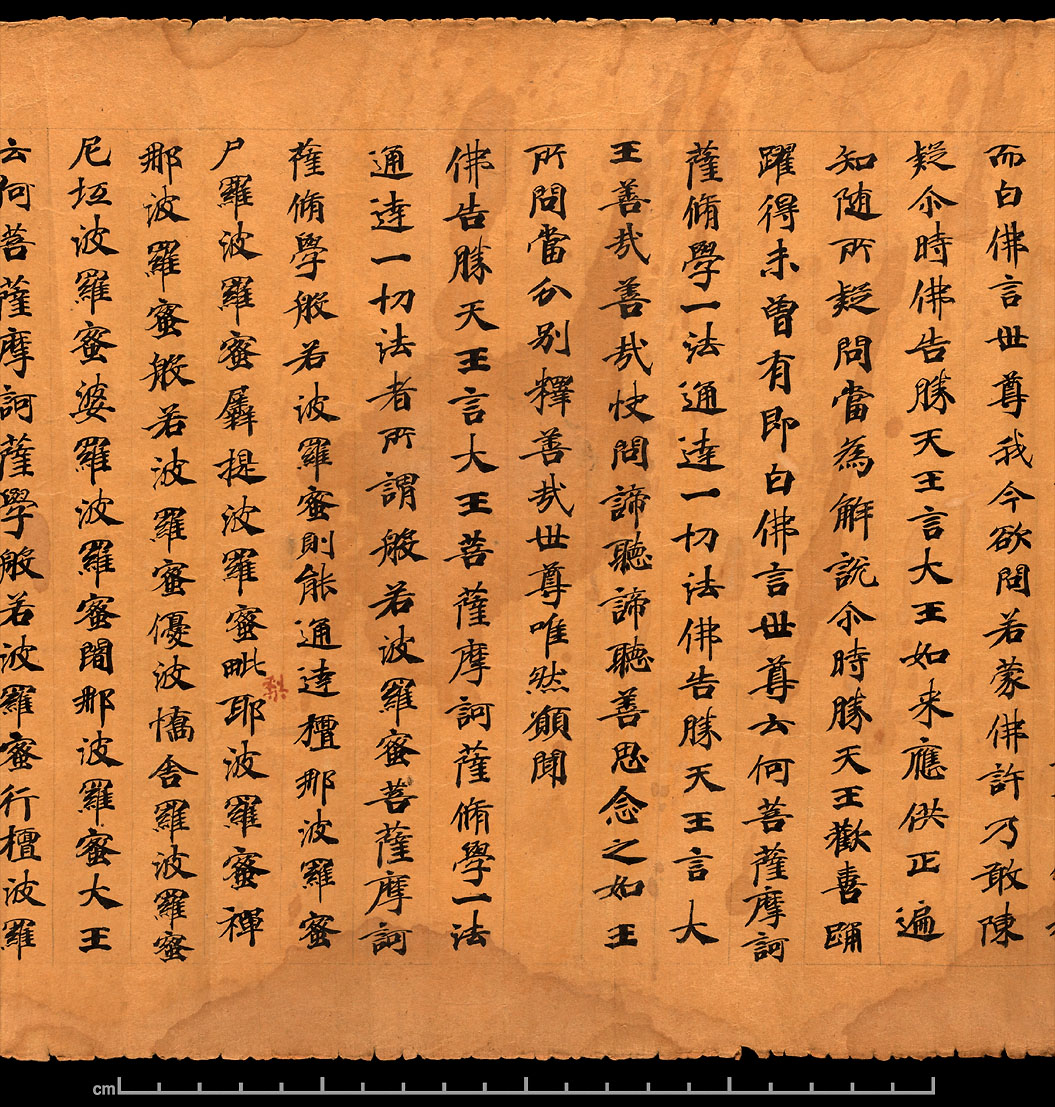 而白佛言世尊我今欲問若蒙佛許乃敢陳
疑尒時佛告勝天王言大王如来應供正遍
知随所疑問當為解說尒時勝天王歡喜踊
躍得未曾有即白佛言世尊云何菩薩摩訶
薩脩學一法通達一切法佛告勝天王言大
王善哉善哉快問諦聽諦聽善思念之如王
所問當分別釋善哉世尊唯然願聞
佛告勝天王言大王菩薩摩訶薩脩學一法
通達一切法者所謂般若波羅蜜菩薩摩訶
薩脩學般若波羅蜜則能通達檀那波羅蜜
尸羅波羅蜜羼提波羅蜜毗梨耶波羅蜜禪
那波羅蜜般若波羅蜜優波憍舍羅波羅蜜
尼坘波羅蜜婆羅波羅蜜闍那波羅蜜大王
云何菩薩摩訶薩學般若波羅蜜行檀波羅
cm